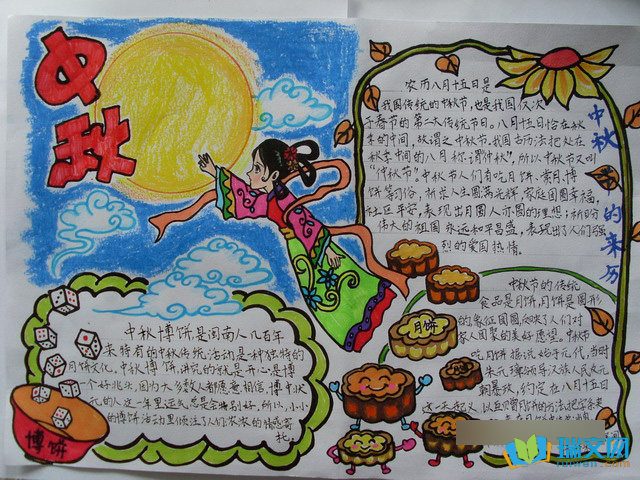 中
秋
中秋的来历
农历八月十五日是
我国传统的中秋节,也是我国仅次
于春节的第二大传统节日。八月十五恰在秋
季的中间,故谓之中秋节。我国古历法把处在
秋季中间的八月称谓“仲秋”,所以中秋节又叫
“仲秋节”。中秋节人们有吃月饼、赏月、博
饼等习俗,祈求人生圆满
家庭团圆幸福,
社区平安,表现出月圆人亦圆的理想;祈盼
伟大的祖国永远和平昌盛,表现出了人们强
烈的爱国热情。
中秋节的传统
食品是月饼,月饼是圆形
的,象征团圆,反映了人们对
家人团聚的美好愿望。中秋节
吃月饼据说始于元代,当时
朱元璋领导汉族人民反元
朝暴政,们定在八月十五日
这一天起义,以
月饼
月饼
中秋博饼是闽南人几百年
来特有的中秋传统活动是一种独特的
月饼文化。中秋博饼,讲究的就是开心是博
一个好兆头,因为大多数人都愿意相信,博中状
元的人这一年里运气总是会特别好。所以,小小
的博饼活动里倾注了人们浓浓的情感寄
托。
博饼
瑞文网
ruiwen.com